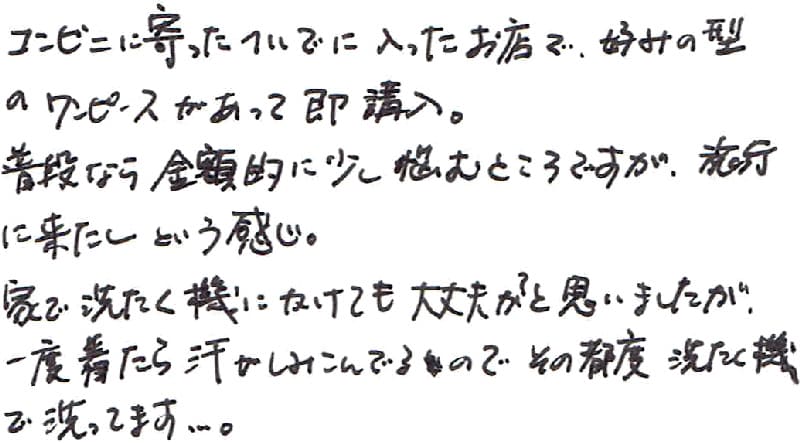 コンビニに寄ったついでに入ったお店で、好みの型
のワンピースがあって即購入。
普段なら金額的に少し悩むところですが、旅行
に来たしという感じ。
家で洗たく機にかけても大丈夫か?と思いましたが、
一度着たら汗がしみこんでるので その都度 洗たく機
で洗ってます…。